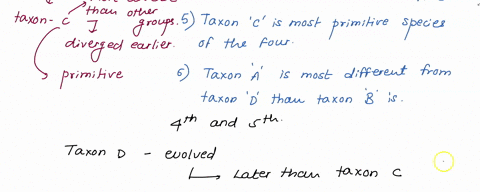 than other
taxon - c groups.
diverged earlier.
primitive
5) Taxon 'c' is most primitive species
of the four.
6) Taxon 'A' is most different from
taxon 'D' than taxon 'B' is.
4th and 5th.
Taxon D - evolved
Later than taxon C